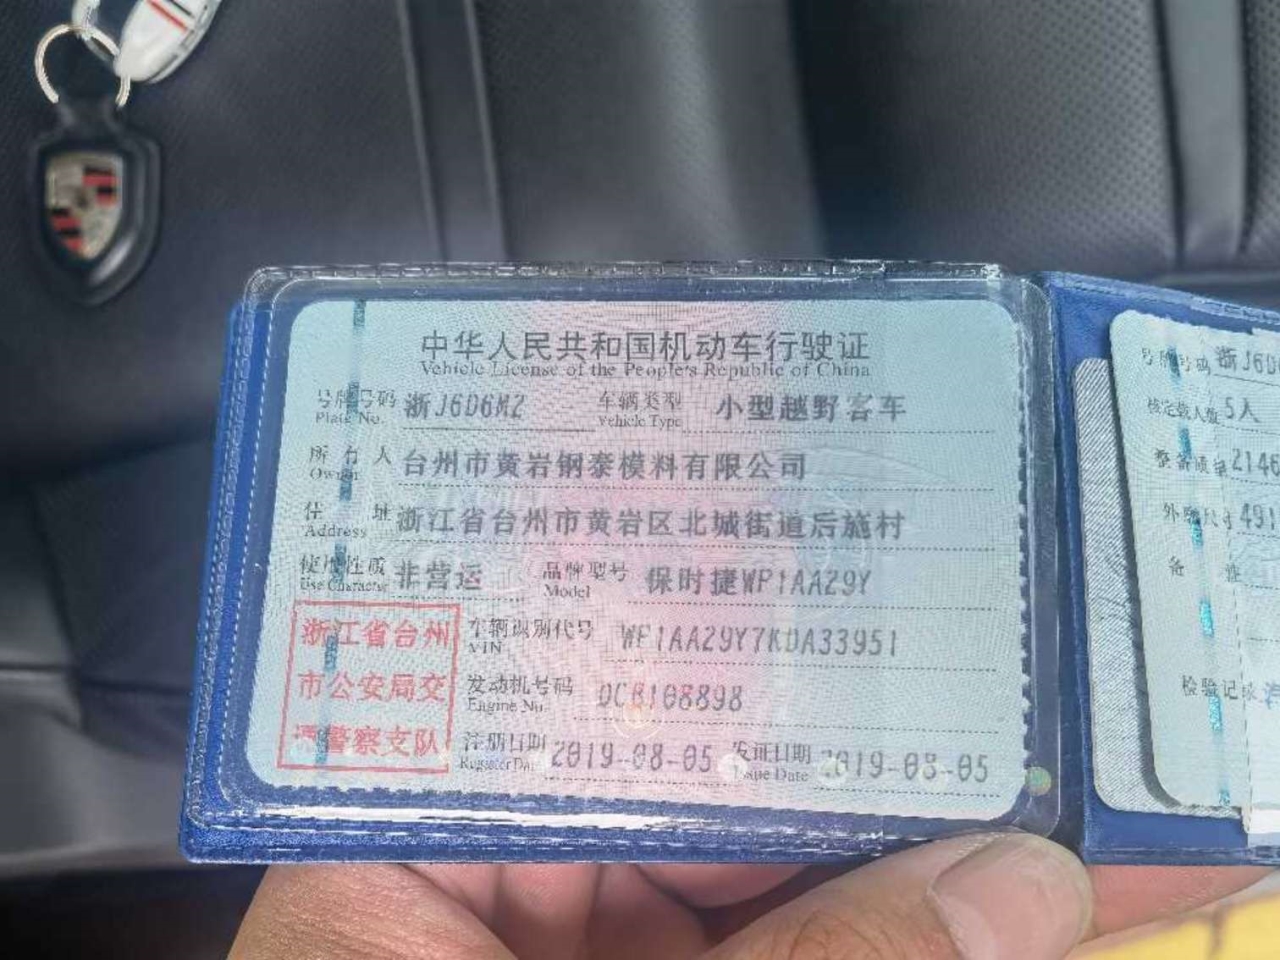 中华人民共和国机动车行驶证
Vehicle License of the People's Republic of China
号牌号码 浙J6D6M2 车辆类型 小型越野客车
Plate No. Vehicle Type
所有人 台州市黄岩钢泰模料有限公司
Owner
住址 浙江省台州市黄岩区北城街道后施村
Address
使用性质 非营运 品牌型号 保时捷WP1AA29Y
Use Character Model
浙江省台州
市公安局交
通警察支队
车辆识别代号 WP1AA29Y7KDA33951
VIN
发动机号码 DCB108898
Engine No.
注册日期 2019-08-05 发证日期 2019-08-05
Register Date Issue Date
号牌号码 浙J6D
核定载人数 5人
整备质量 2146
外廓尺寸 491
备注
检验记录